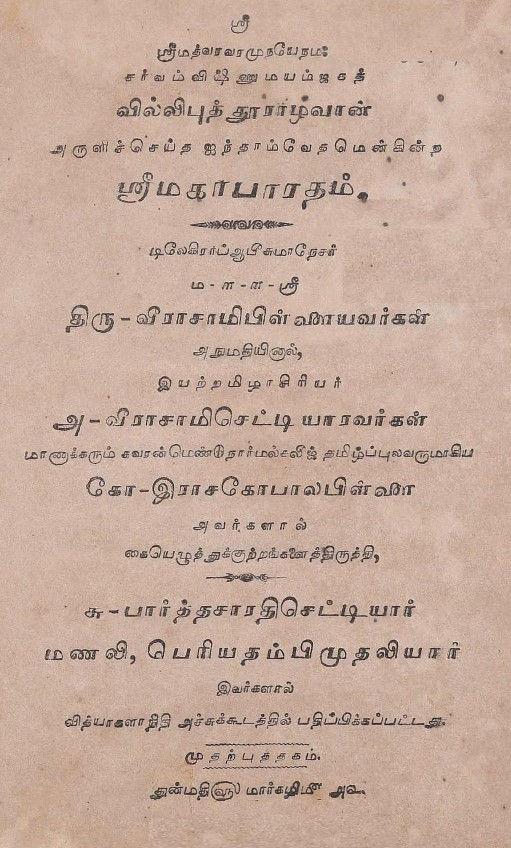 ஸ்ரீ
ஸ்ரீமத்வரவரமுநயேநம:
சர்வம்விஷ்ணுமயம்ஜகத்
வில்லிபுத்தூரார்ழ்வான்
அருளிச்செய்த ஐந்தாம்வேதமென்கின்ற
ஸ்ரீமகாபாரதம்.
டிலேகிரர்ப்ஆபீசுமாநேசர்
ம-ள-ள-ஸ்ரீ
திரு-வீராசாமிபிள்ளையவர்கள்
அநுமதியினால்,
இயற்றமிழாசிரியர்
அ-வீராசாமிசெட்டியாரவர்கள்
மாணாக்கரும் கவரன்மெண்டுநார்மல்கலிஜ் தமிழ்ப்புலவருமாகிய
கோ-இராசகோபாலபிள்ளை
அவர்களால்
கையெழுத்துக்குற்றங்களைத்திருத்தி,
சு-பார்த்தசாரதிசெட்டியார்
மணலி, பெரியதம்பிமுதலியார்
இவர்களால்
வித்யாகலாநிதி அச்சுக்கூடத்தில் பதிப்பிக்கப்பட்டது.
முதற்புத்தகம்.
துன்மதி௵ மார்கழி௴